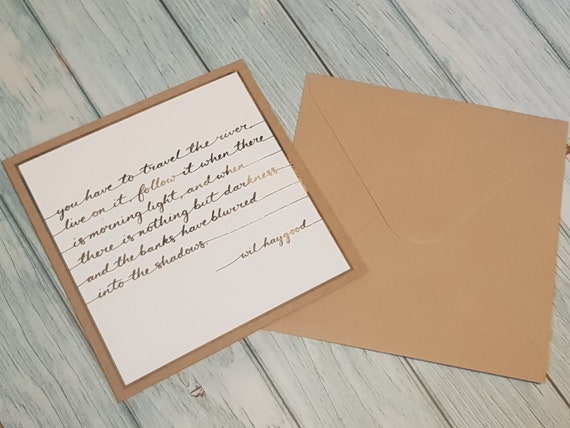 you have to travel the river
live on it follow it when there
is morning light, and when
there is nothing but darkness
and the banks have blurred
into the shadows.
wil haygood